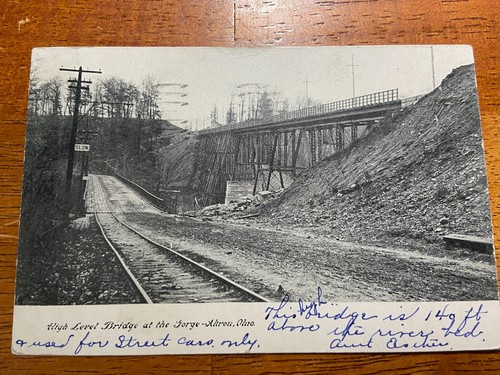 SLOW
High Level Bridge at the Gorge-Akron, Ohio.
This high bridge is 149 ft
above the river bed.
& used for Street cars, only.